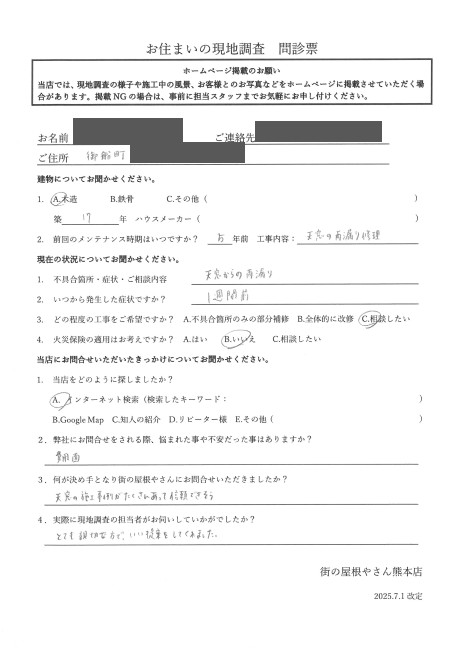 お住まいの現地調査 問診票
ホームページ掲載のお願い
当店では、現地調査の様子や施工中の風景、お客様とのお写真などをホームページに掲載させていただく場
合があります。掲載 NG の場合は、事前に担当スタッフまでお気軽にお申し付けください。
お名前 ご連絡先
ご住所 御船町
建物についてお聞かせください。
1. A.木造 B.鉄骨 C.その他( )
築 17 年 ハウスメーカー( )
2. 前回のメンテナンス時期はいつですか? 5 年前 工事内容: 天窓の雨漏り修理
現在の状況についてお聞かせください。
1. 不具合箇所・症状・ご相談内容 天窓からの雨漏り
2. いつから発生した症状ですか? 1週間前
3. どの程度の工事をご希望ですか? A.不具合箇所のみの部分補修 B.全体的に改修 C.相談したい
4. 火災保険の適用はお考えですか? A.はい B.いいえ C.相談したい
当店にお問合せいただいたきっかけについてお聞かせください。
1. 当店をどのように探しましたか?
A. インターネット検索(検索したキーワード: )
B.Google Map C.知人の紹介 D.リピーター様 E.その他( )
2.弊社にお問合せをされる際、悩まれた事や不安だった事はありますか?
費用面
3.何が決め手となり街の屋根やさんにお問合せいただきましたか?
天窓の施工事例がたくさんあって信頼できそう
4.実際に現地調査の担当者がお伺いしていかがでしたか?
とても親切な方で、いい提案をしてくれました。
街の屋根やさん熊本店
2025.7.1 改定